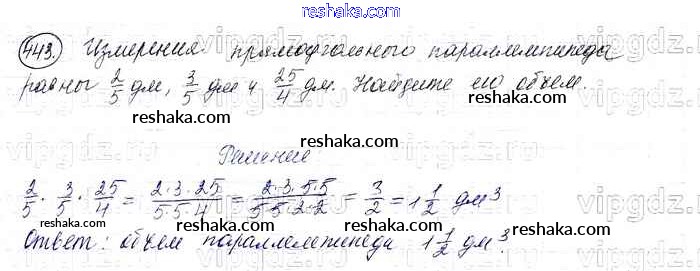 reshaka.com
443. Измерения прямоугольного параллелепипеда
равны 2/5 дм, 3/5 дм и 25/4 дм. Найдите его объем.
reshaka.com
reshaka.com
Решение
reshaka.com
2/5 · 3/5 · 25/4 = 2·3·25/5·5·4 = 2·3·5·5/5·5·2·2 = 3/2 = 1 1/2 дм³
Ответ: объем параллелепипеда 1 1/2 дм³.
reshaka.com
reshaka.com
vipgdz.com
vipgdz.com
vipgdz.com